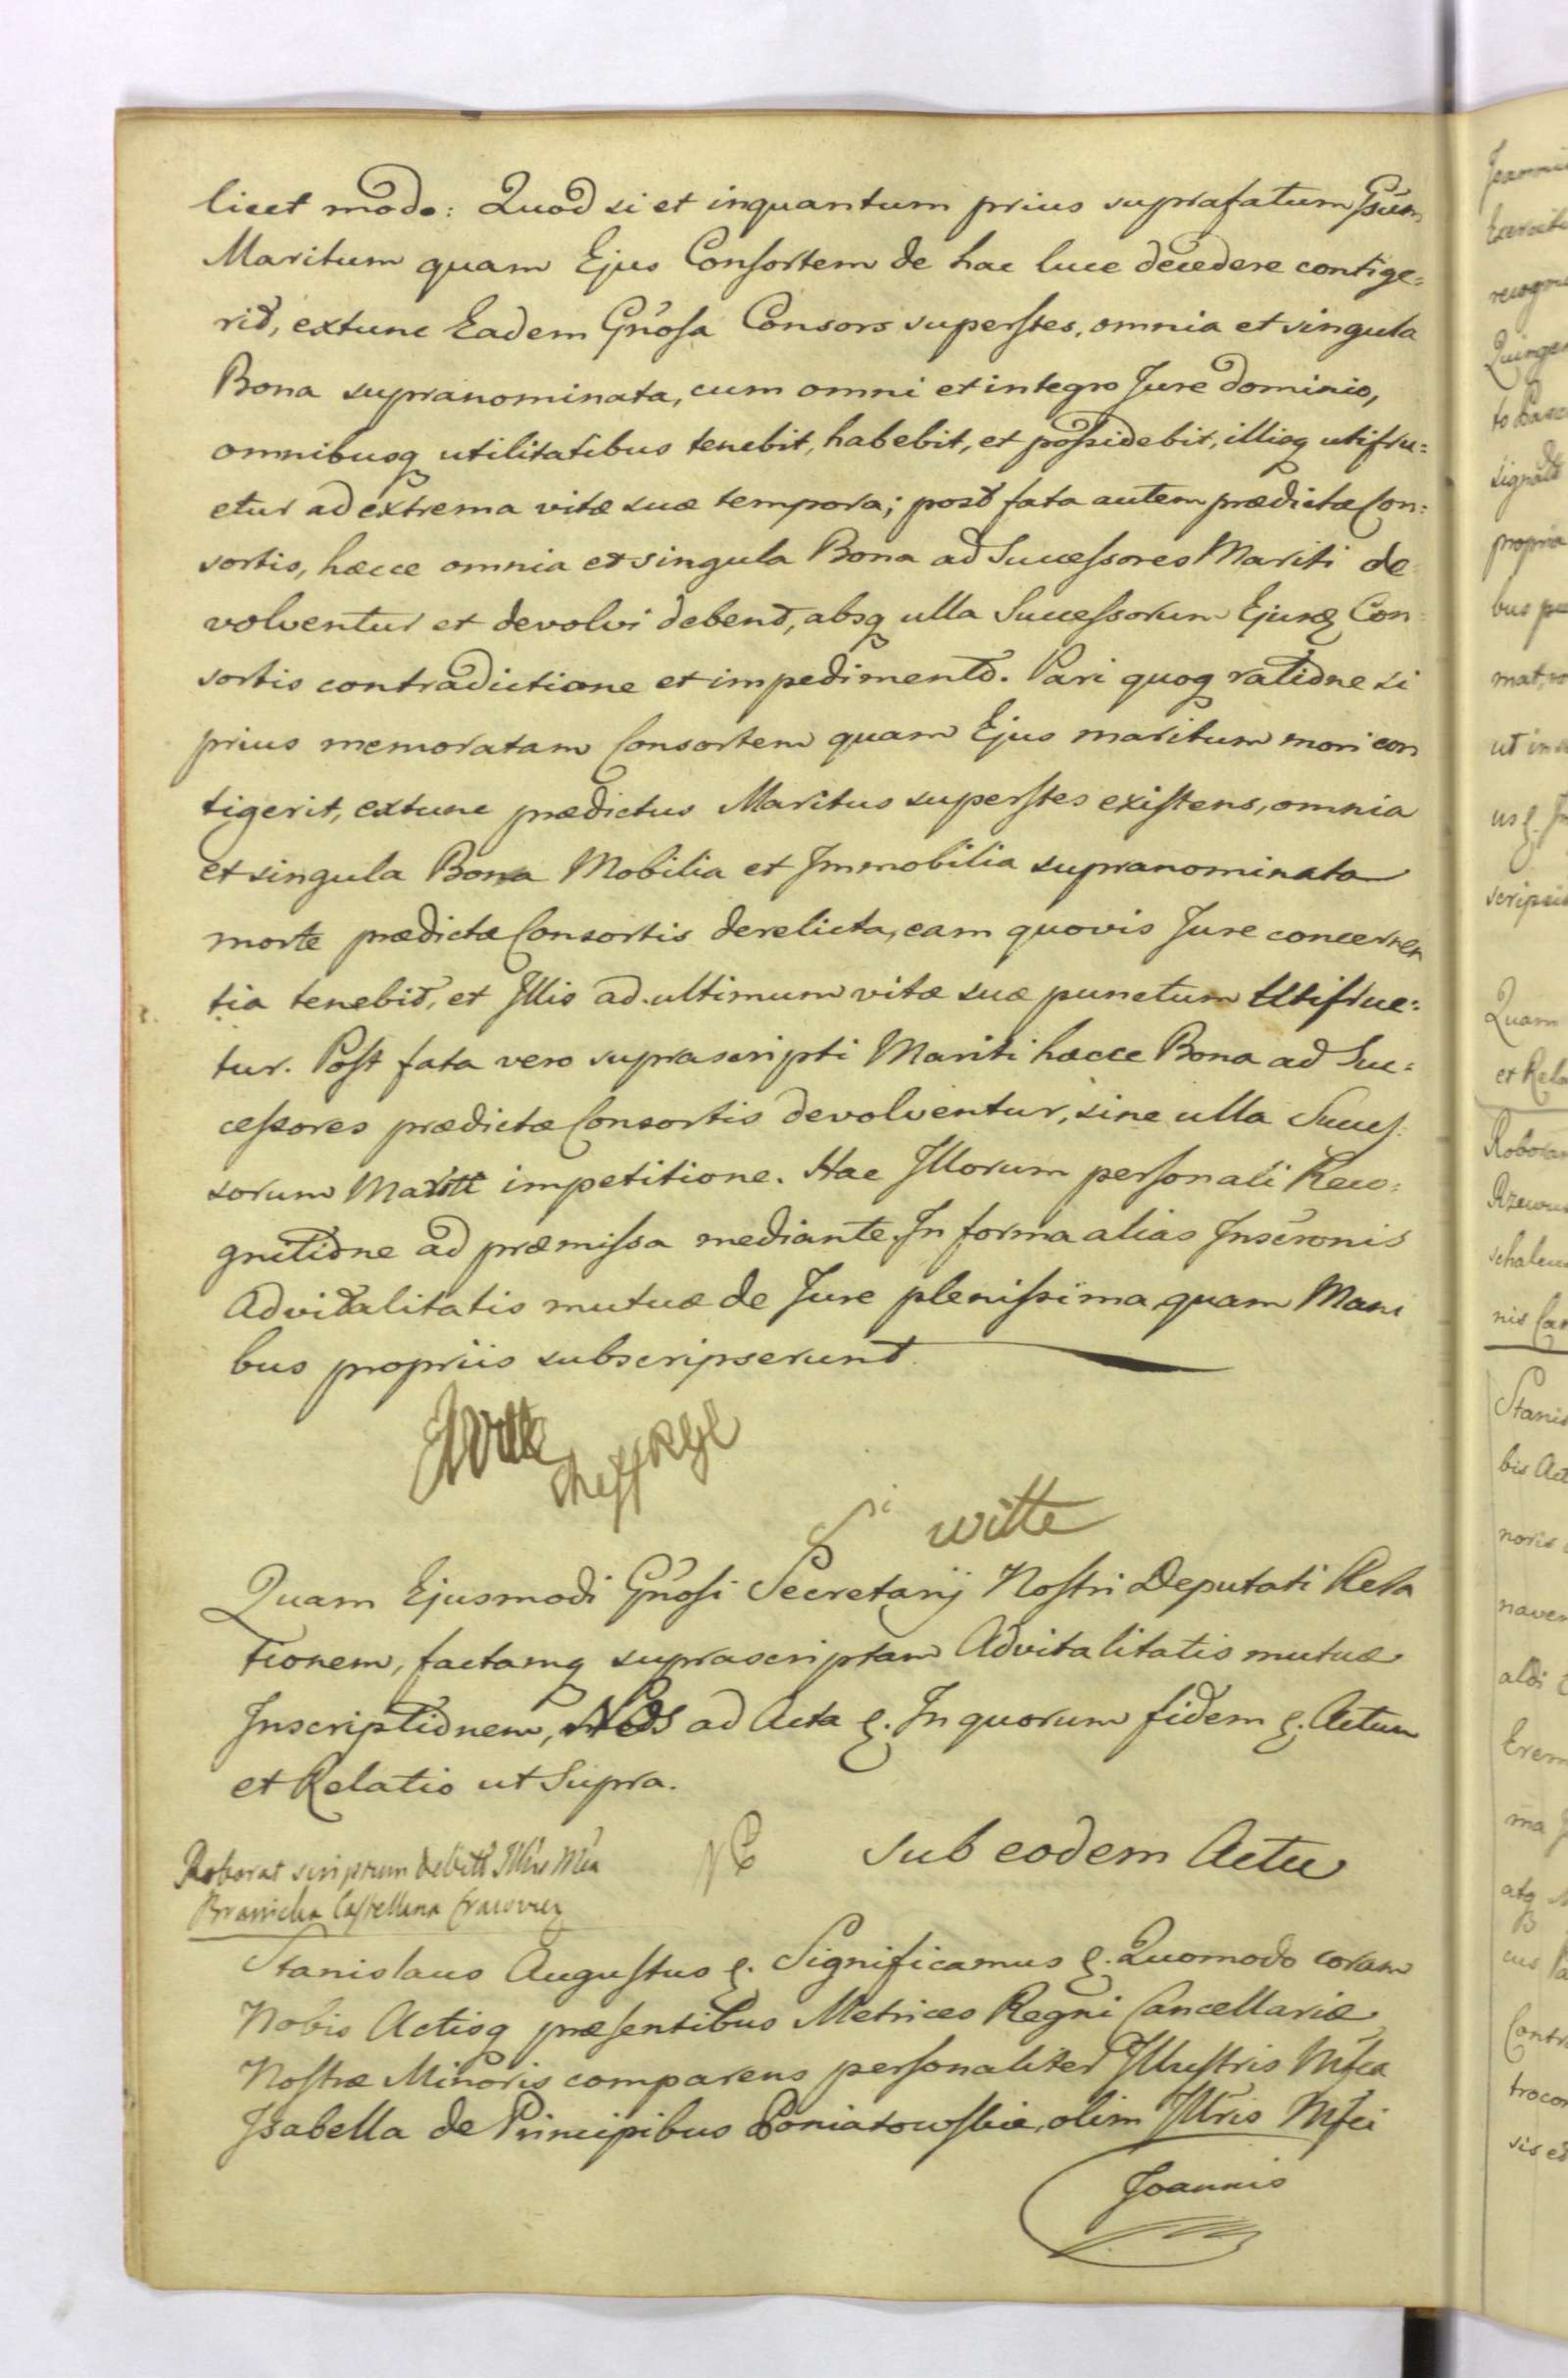 licet modo: Quod si et inquantum prius suprafatum Gñsum
Maritum quam Ejus Consortem de hac luce decedere contige=
rit, extunc Eadem Gñosa Consors superstes, omnia et singula
Bona supranominata, cum omni et integro Jure dominio,
omnibusq utilitatibus tenebit, habebit, et possidebit, illisq utifru=
etur ad extrema vitæ suæ tempora; post fata autem prædictæ Con=
sortis, hæcce omnia et singula Bona ad Successores Mariti de=
volventur et devolvi debent, absq ulla Successorum Ejusq Con=
sortis contradictione et impedimento. Pari quoq ratione si
prius memoratam Consortem quam Ejus maritum mori con
tigerit, extunc prædictus Maritus superstes existens, omnia
et singula Bona Mobilia et Immobilia supranominata
morte prædictæ Consortis derelicta, eam quovis Jure concernen
tia tenebit, et Illis ad ultimum vitæ suæ punctum Utifrue=
tur. Post fata vero suprascripti Mariti hæcce Bona ad Suc=
cessores prædictæ Consortis devolventur, sine ulla Succes=
sorum Mariti impetitione. Hac Illorum personali Reco=
gnitione ad præmissa mediante. In forma alias Inscr̃onis
Advitalitatis mutuæ de Jure plenissima, quam Mani
bus propriis subscripserunt.
JWitte
witte
Quam Ejusmodi Gñosi Secretarij Nostri Deputati Rela
tionem, factamq suprascriptam Advitalitatis mutuæ
Inscriptionem, Nos ad Acta &. In quorum fidem &. Actum
et Relatio ut Supra.
Roborat scriptum debiti Illris Mca
Branicka Castellana Cracovien
Sub eodem Actu
Stanislaus Augustus &. Significamus &. Quomodo coram
Nobis Actisq præsentibus Metrices Regni Cancellariæ
Nostræ Minoris comparens personaliter Illustris Mfca
Isabella de Principibus Poniatowskie, olim Illris Mfci
Joannis